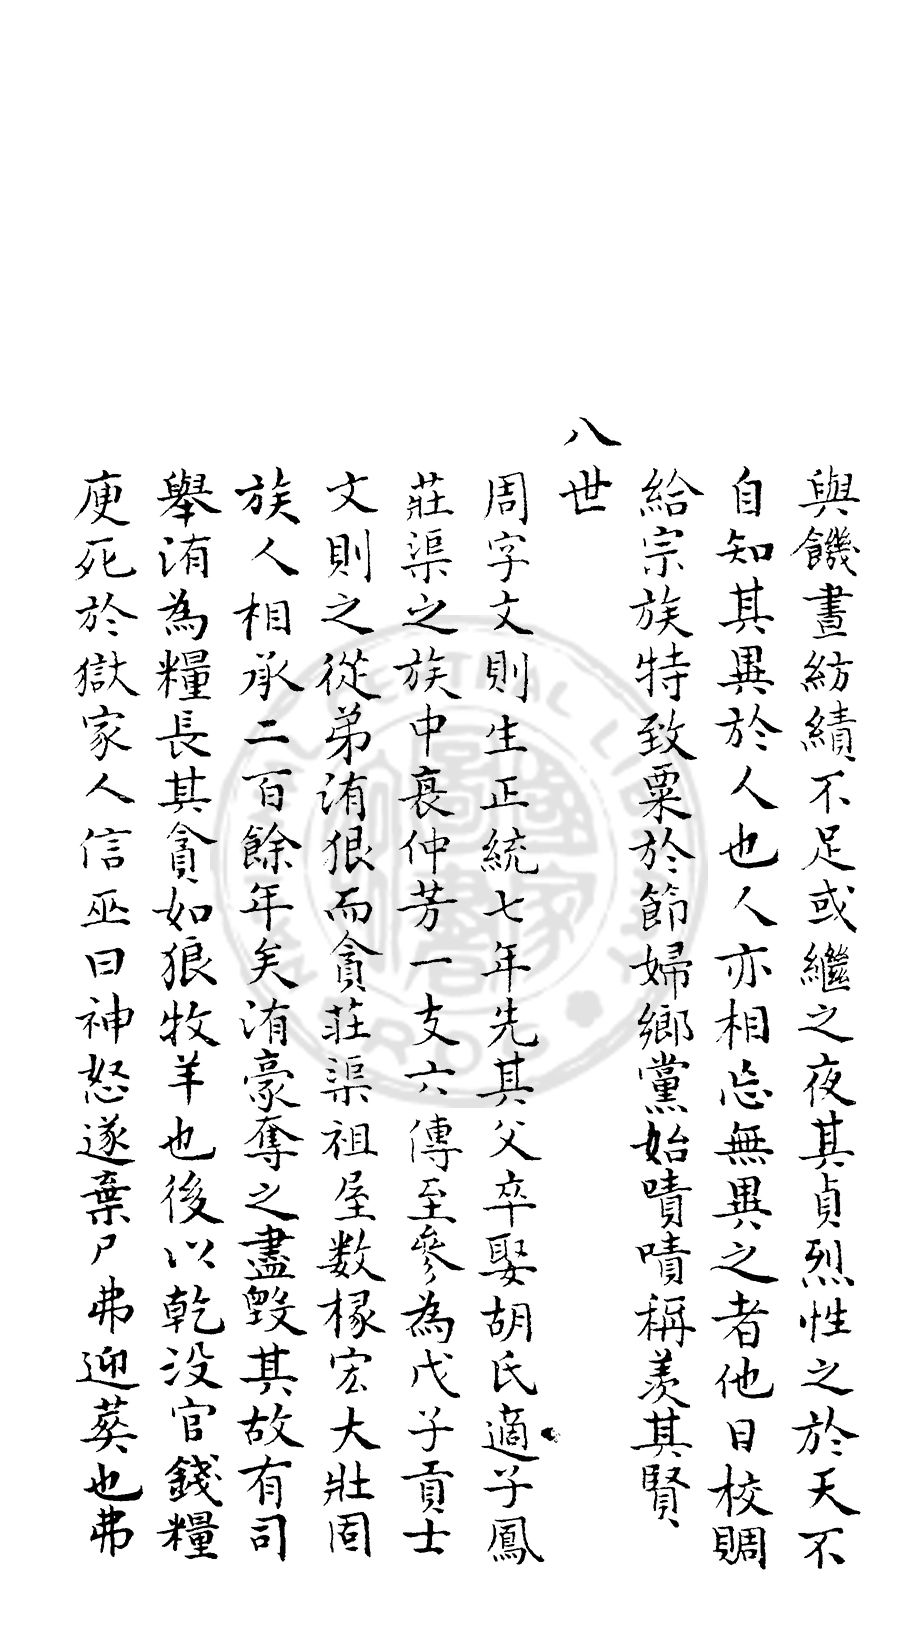 與饑晝紡績不足或繼之夜其貞烈性之於天不
自知其異於人也人亦相忘無異之者他日校賙
給宗族特致粟於節婦鄉黨始嘖嘖稱羨其賢
八世
周字文則生正統七年先其父卒娶胡氏適子鳳
莊渠之族中衰仲芳一支六傳至參為戊子貢士
文則之從弟洧狠而貪莊渠祖屋数椽宏大壯固
族人相承二百餘年矣洧豪奪之盡毀其故有司
舉洧為糧長其貪如狼牧羊也後以乾没官錢糧
庾死於獄家人信巫曰神怒遂棄尸弗迎葬也弗
NATIONAL CENTRAL LIBRARY